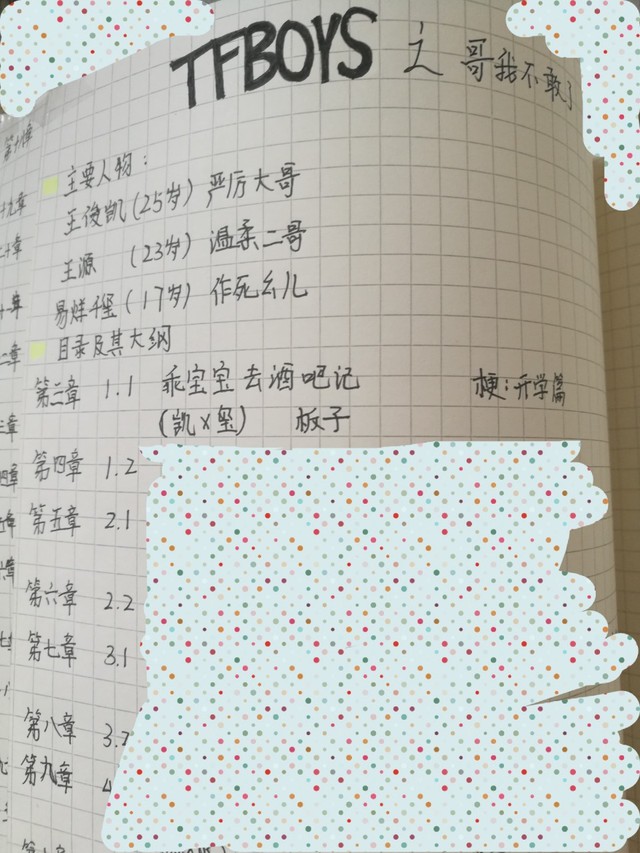 TFBOYS 之 哥我不敢了
主要人物:
王俊凯(25岁) 严厉大哥
王源 (23岁) 温柔二哥
易烊千玺(17岁) 作死幺儿
目录及其大纲
第二章 1.1 乖宝宝去酒吧记 梗:开学篇
(凯×玺) 板子
第四章 1.2
第五章 2.1
第六章 2.2
第七章 3.1
第八章 3.2
第九章